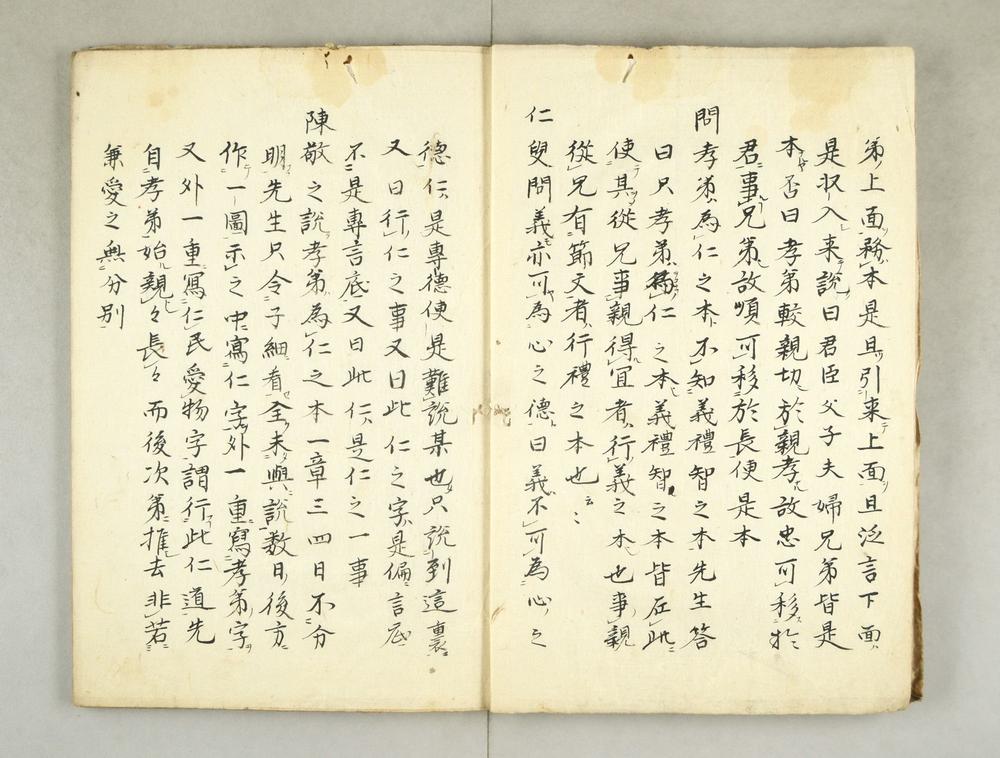 弟上面務本是且引来上面且泛言下面
是収入来説曰君臣父子夫婦兄弟皆是
本否曰孝弟較親切於親孝故忠可移於
君事兄弟故順可移於長便是本
問孝弟為仁之本不知義禮智之本先生答
曰只孝弟為仁之本義禮智之本皆在此
使其從兄事親得冝者行義之本也事親
從兄有節文者行禮之本也云々
仁叟問義亦可為心之德曰義不可為心之
德仁是專德便是難說某也只說到這裏
又曰行仁之事又曰此仁之字是偏言底
不是專言底又曰此仁是仁之一事
陳敬之說孝弟為仁之本一章三四日不分
明先生只令子細看全未與說数日後方
作一圖示之中寫仁字外一重寫孝弟字
又外一重寫仁民愛物字謂行此仁道先
自孝弟始親々長々而後次第推去非若
兼愛之無分別